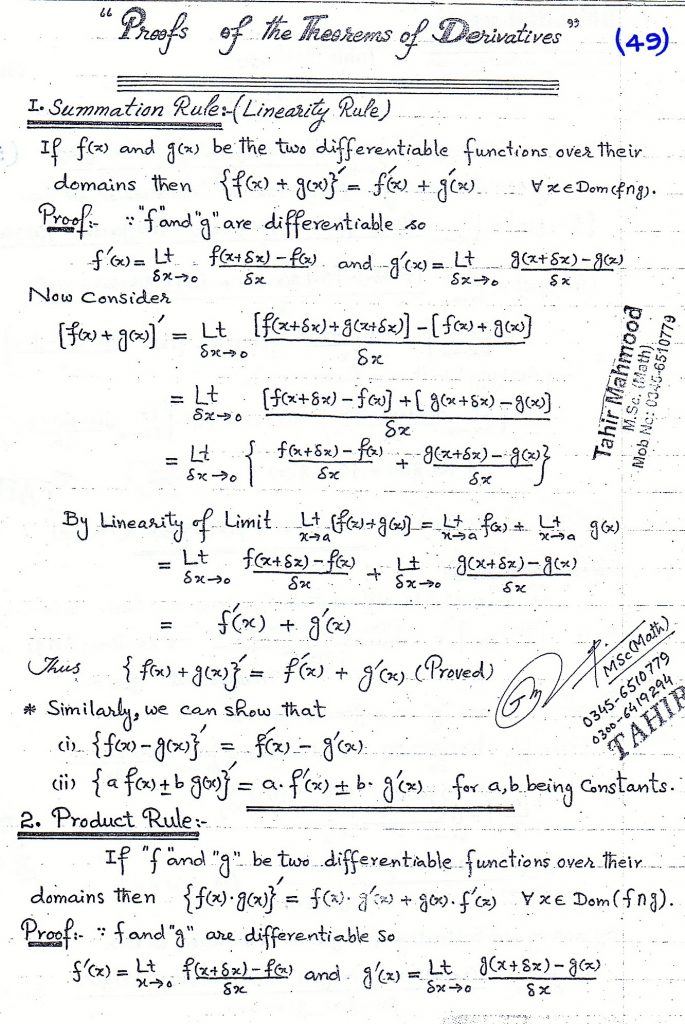 “Proofs of the Theorems of Derivatives” (49)
I. Summation Rule:-(Linearity Rule)
If f(x) and g(x) be the two differentiable functions over their
domains then {f(x) + g(x)}′ = f′(x) + g′(x) ∀ x ∈ Dom(f∩g).
Proof:- ∵ "f" and "g" are differentiable so
f′(x) = Lt δx→0 f(x+δx) − f(x) / δx and g′(x) = Lt δx→0 g(x+δx) − g(x) / δx
Now Consider
[f(x) + g(x)]′ = Lt δx→0 [f(x+δx) + g(x+δx)] − [f(x) + g(x)] / δx
= Lt δx→0 [f(x+δx) − f(x)] + [g(x+δx) − g(x)] / δx
= Lt δx→0 { f(x+δx) − f(x) / δx + g(x+δx) − g(x) / δx }
Tahir Mahmood
M.Sc. (Math)
Mob No: 0345-6510779
By Linearity of Limit Lt x→a [f(x) + g(x)] = Lt x→a f(x) + Lt x→a g(x)
= Lt δx→0 f(x+δx) − f(x) / δx + Lt δx→0 g(x+δx) − g(x) / δx
= f′(x) + g′(x)
Thus { f(x) + g(x)}′ = f′(x) + g′(x) (Proved)
MSc(Math)
0345-6510779
0300-6419294
TAHIR
* Similarly, we can show that
(i) {f(x) − g(x)}′ = f′(x) − g′(x)
(ii) {a f(x) ± b g(x)}′ = a. f′(x) ± b. g′(x) for a,b being Constants.
2. Product Rule:-
If "f" and "g" be two differentiable functions over their
domains then {f(x)·g(x)}′ = f(x)· g′(x) + g(x). f′(x) ∀ x ∈ Dom(f∩g).
Proof:- ∵ f and "g" are differentiable So
f′(x) = Lt x→0 f(x+δx) − f(x) / δx and g′(x) = Lt δx→0 g(x+δx) − g(x) / δx